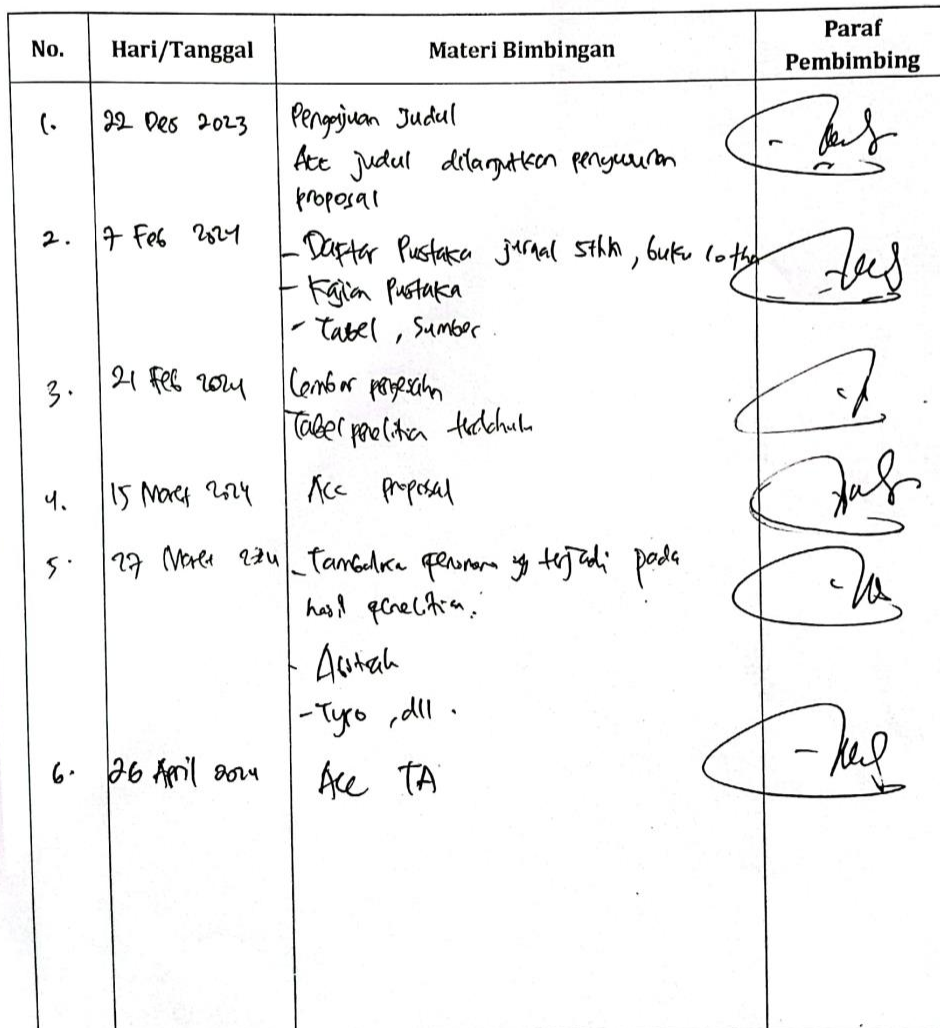 No. Hari/Tanggal Materi Bimbingan Paraf Pembimbing
1. 22 Des 2023 Pengajuan Judul
Acc judul dilanjutkan penyusunan
proposal
2. 7 Feb 2024
- Daftar Pustaka jurnal sthn, buku
- Kajian Pustaka
- Tabel, Sumber.
3. 21 Feb 2024 Lembar pengesahn
Tabel penelitian terdahulu
4. 15 Maret 2024 Acc proposal
5. 27 Maret 2024 - Tambahkan yg terjadi pada
hasil penelitian.
- Abstrak
- Typo, dll.
6. 26 April 2024 Acc TA